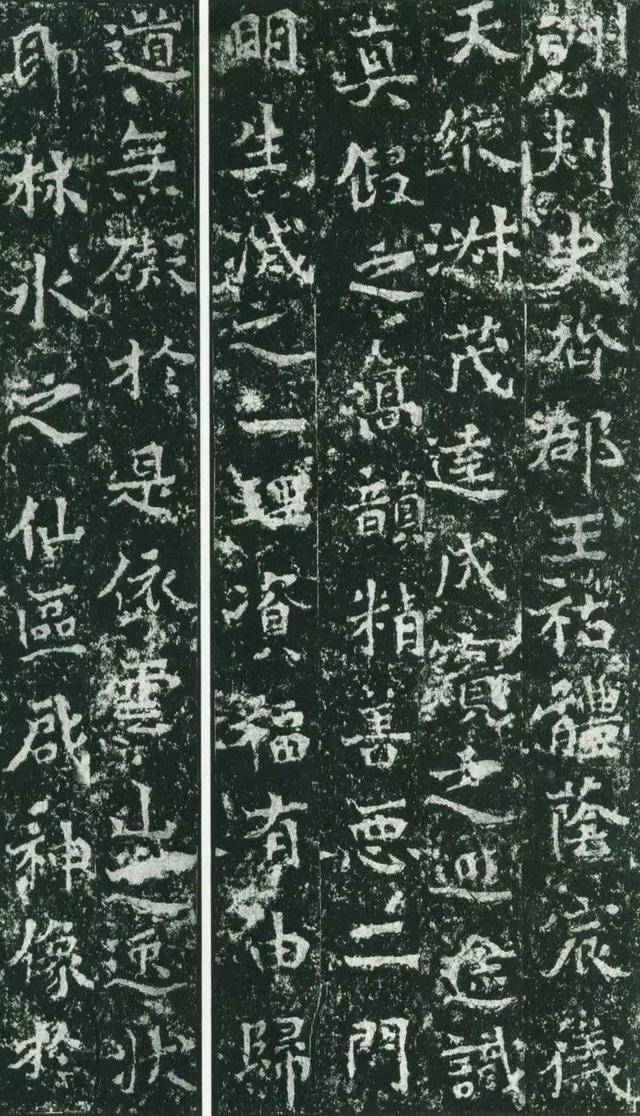 刺史齊郡王祐體蔭宸儀
天縱淑茂達成實之途識
真假之高韻精善惡二門
明生滅之一理資福有由歸
道無礙於是依雲山之逸狀
即林水之仙區啟神像於